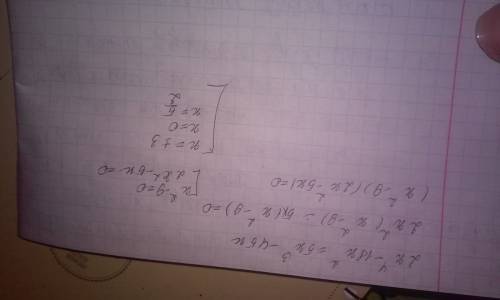 2x⁴-18x²=5x³-45x
2x²(x²-9)-5x(x²-9)=0
(x²-9)(2x²-5x)=0
[x²-9=0
[2x²-5x=0
[x=±3
x=0
x=5/2